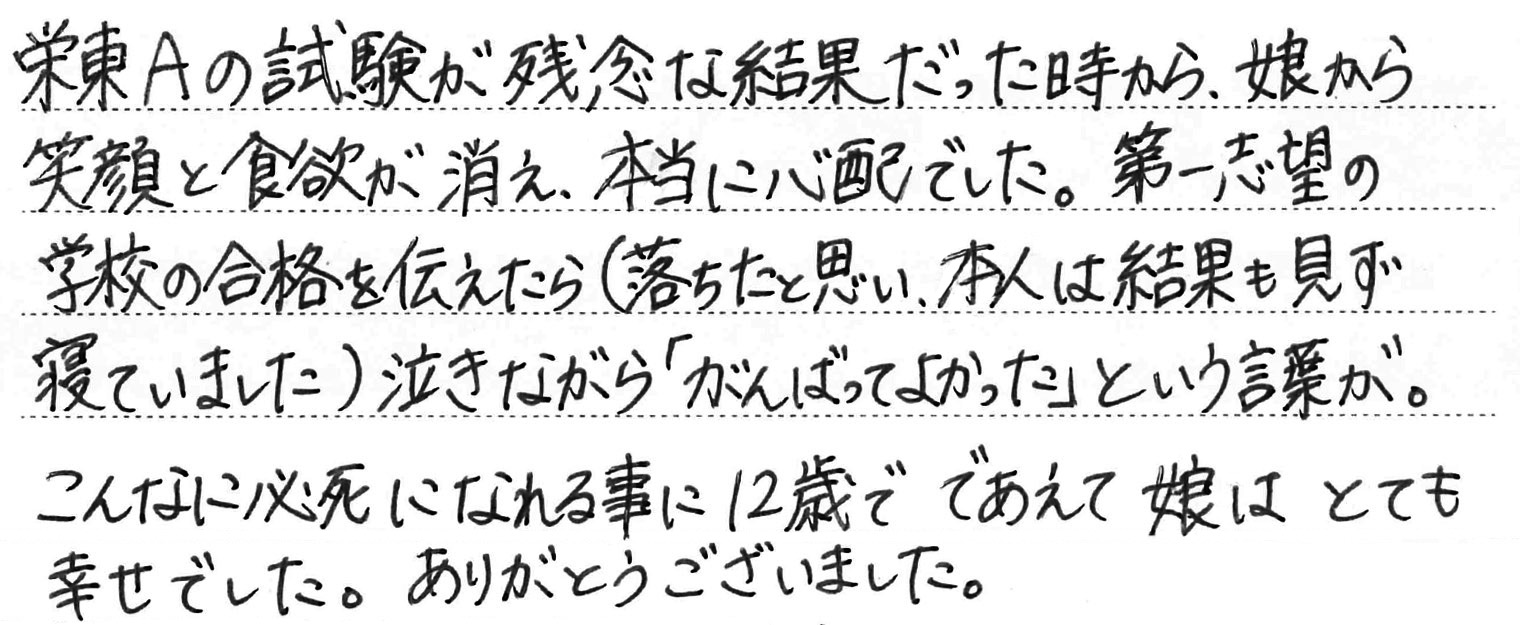 栄東Aの試験が残念な結果だった時から、娘から
笑顔と食欲が消え、本当に心配でした。第一志望の
学校の合格を伝えたら(落ちたと思い、本人は結果も見ず
寝ていました)泣きながら「がんばってよかった」という言葉が。
こんなに必死になれる事に12歳で であえて 娘は とても
幸せでした。ありがとうございました。